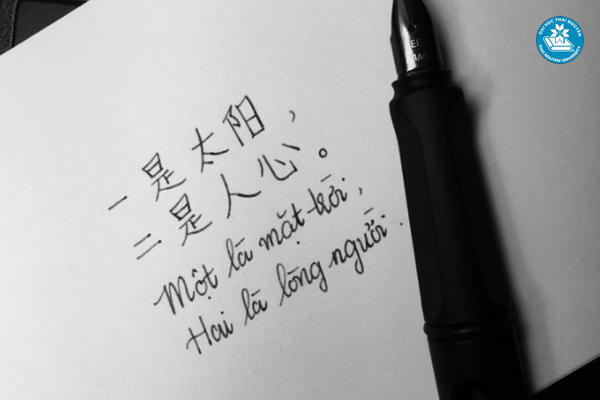 一是太阳，
二是人心。
Một là mặt trời,
Hai là lòng người.
ĐẠI HỌC THÁI NGUYÊN
THAI NGUYEN UNIVERSITY